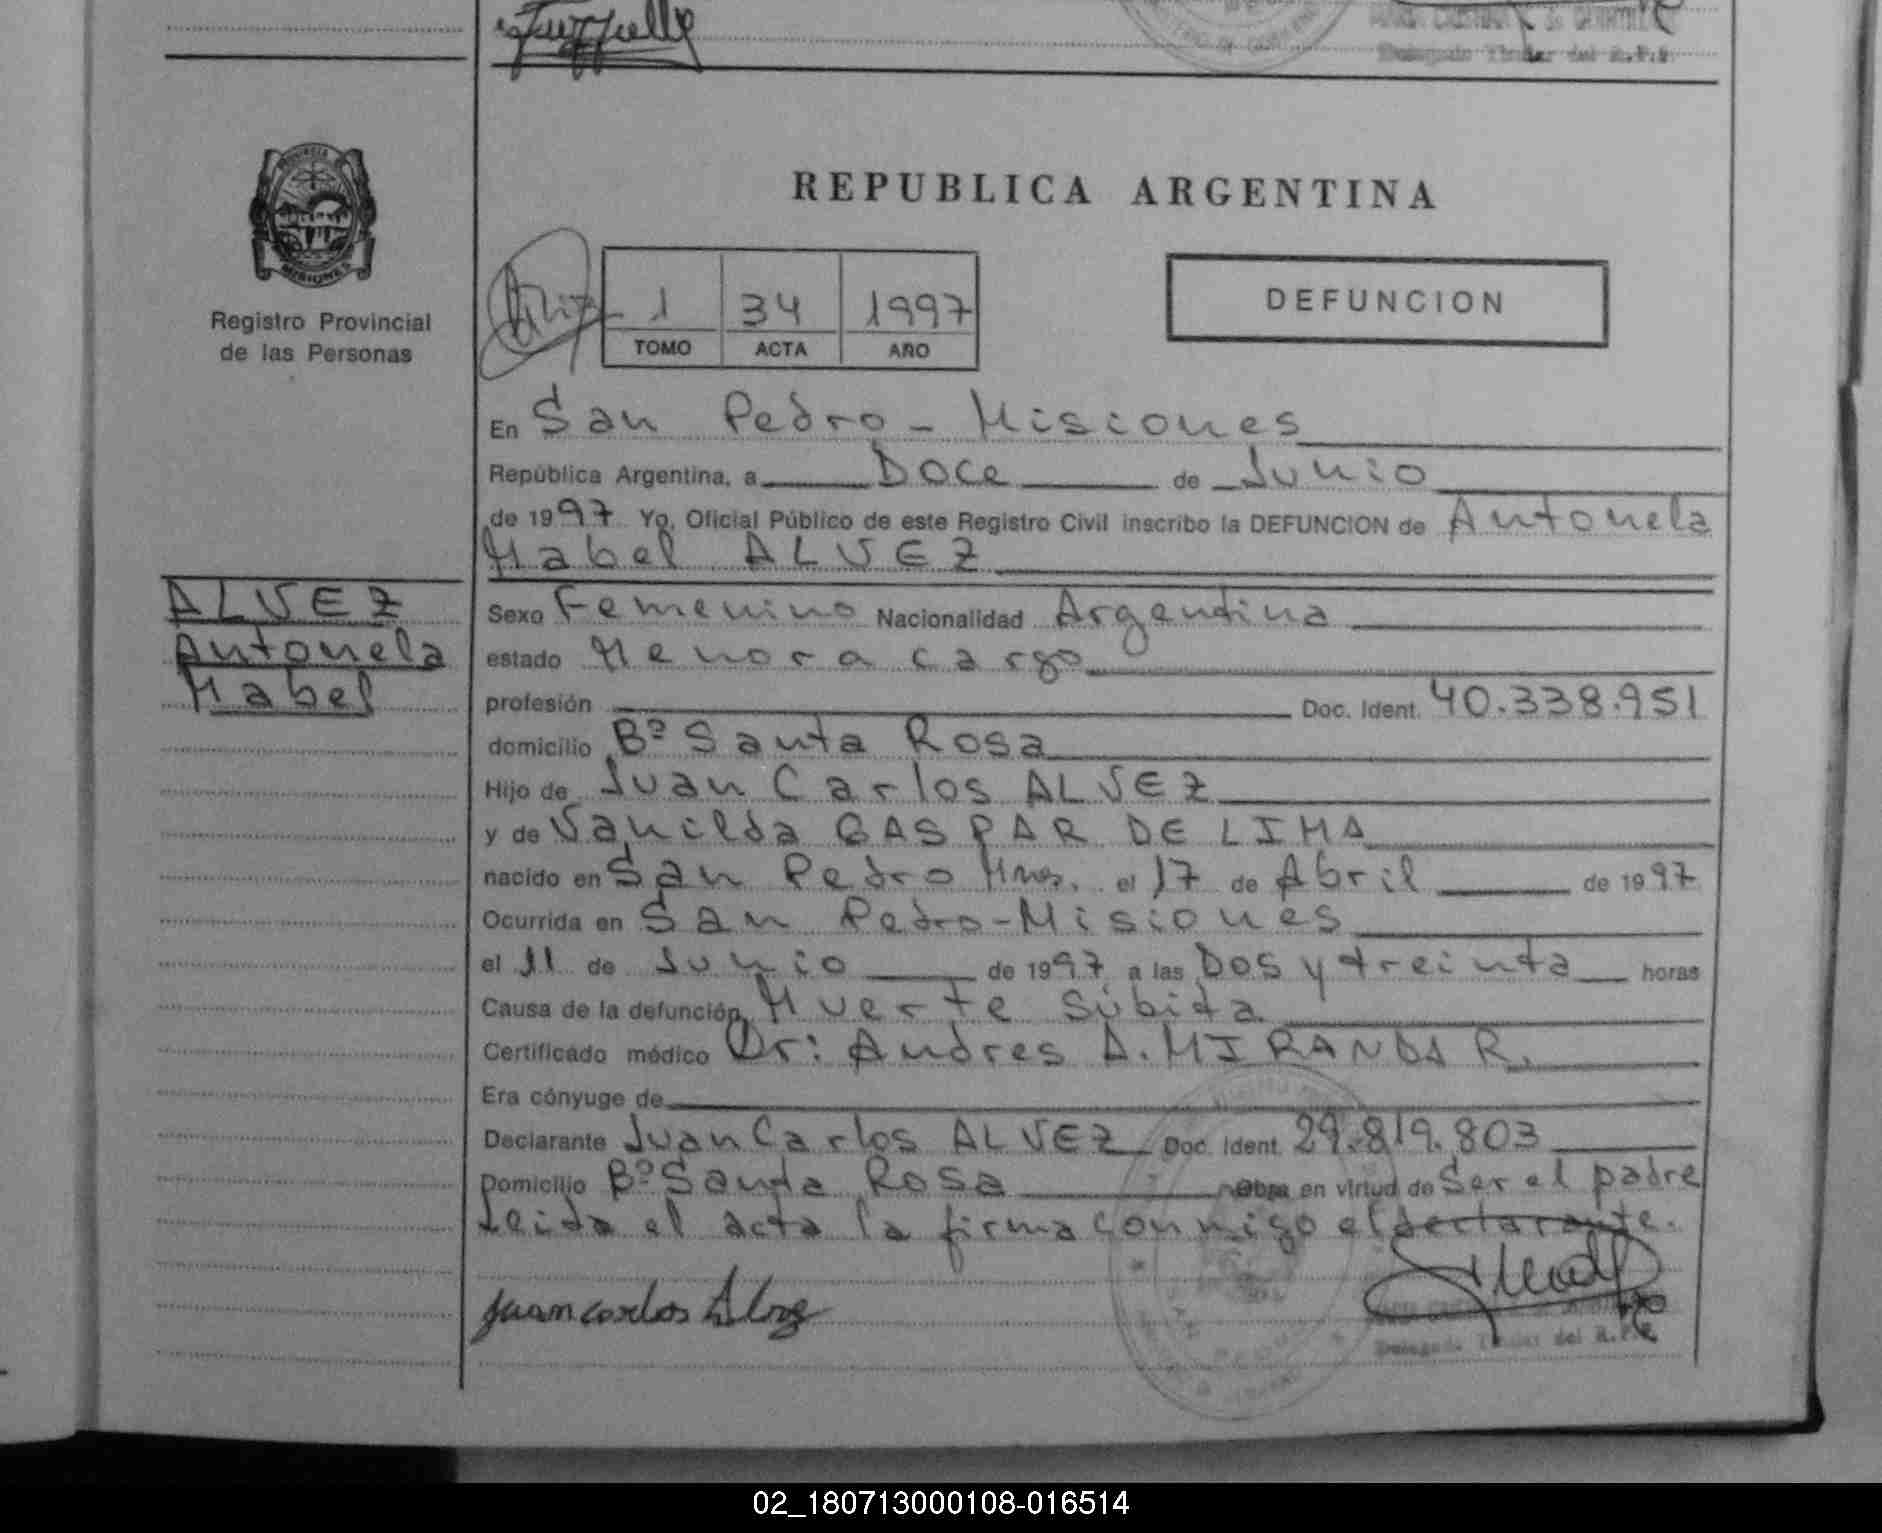 Delegado Titular del R.P.P.
PROVINCIA DE
MISIONES
Registro Provincial
de las Personas
REPUBLICA ARGENTINA
1 34 1997
TOMO ACTA AÑO
DEFUNCION
En San Pedro - Misiones
República Argentina, a Doce de Junio
de 1997 Yo, Oficial Público de este Registro Civil inscribo la DEFUNCION de Antonela
Mabel ALVEZ
ALVEZ
Antonela
Mabel
Sexo Femenino Nacionalidad Argentina
estado Menor a cargo
profesión Doc. Ident. 40.338.951
domicilio Bº Santa Rosa
Hijo de Juan Carlos ALVEZ
y de Vanilda GASPAR DE LIMA
nacido en San Pedro Mnes. el 17 de Abril de 1997
Ocurrida en San Pedro-Misiones
el 11 de Junio de 1997 a las Dos y treinta horas
Causa de la defunción Muerte Súbita
Certificado médico Dr: Andres A. MIRANDA R.
Era cónyuge de
Declarante Juan Carlos ALVEZ Doc. Ident. 29.819.803
Domicilio Bº Santa Rosa Obra en virtud de Ser el padre
Leida el acta la firma conmigo el declarante.
Juan carlos Alvez
Delegado Titular del R.P.P.
02_180713000108-016514